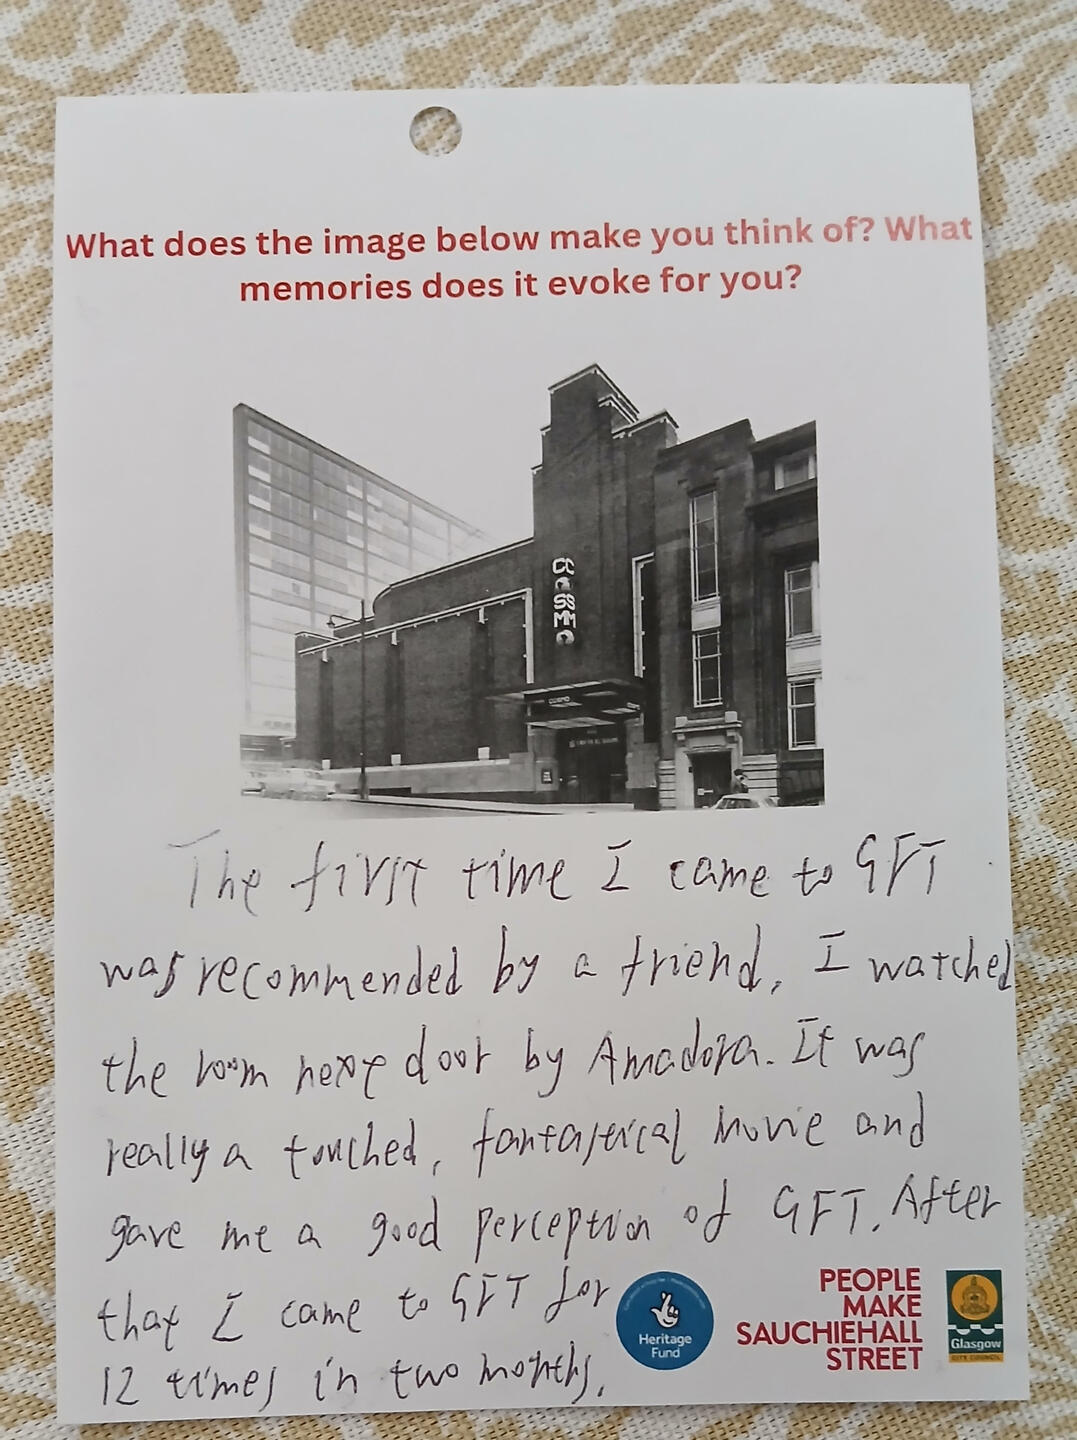 What does the image below make you think of? What
memories does it evoke for you?
COSMO
COSMO
The first time I came to GFT
was recommended by a friend, I watched
the room next door by Amadora. It was
really a touched, fantastical movie and
gave me a good perception of GFT. After
that I came to GFT for
12 times in two months.
Heritage
Fund
PEOPLE
MAKE
SAUCHIEHALL
STREET
Glasgow
CITY COUNCIL